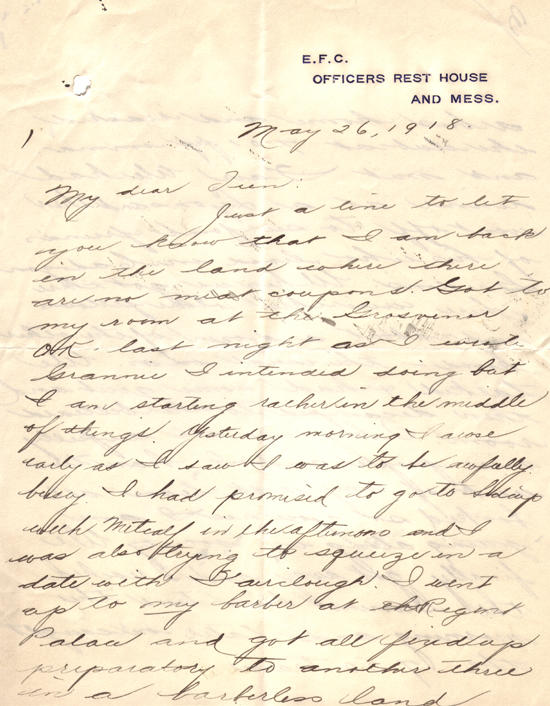 E.F.C.
OFFICERS REST HOUSE
AND MESS.
May 26, 1918.
1
My dear
Just a line to let
you know that I am back
in the land where there
are no meat coupons. Got to
my room at the Grosvenor
OK. last night as I wrote
Grannie I intended doing but
I am starting rather in the middle
of things. Yesterday morning I arose
early as I saw I was to be awfully
busy. I had promised to go to
with Metcalf in the afternoon and I
was also trying to squeeze in a
date with Fairclough. I went
up to my barber at the Regent
Palace and got all fixed up
preparatory to another three
in a barberless land